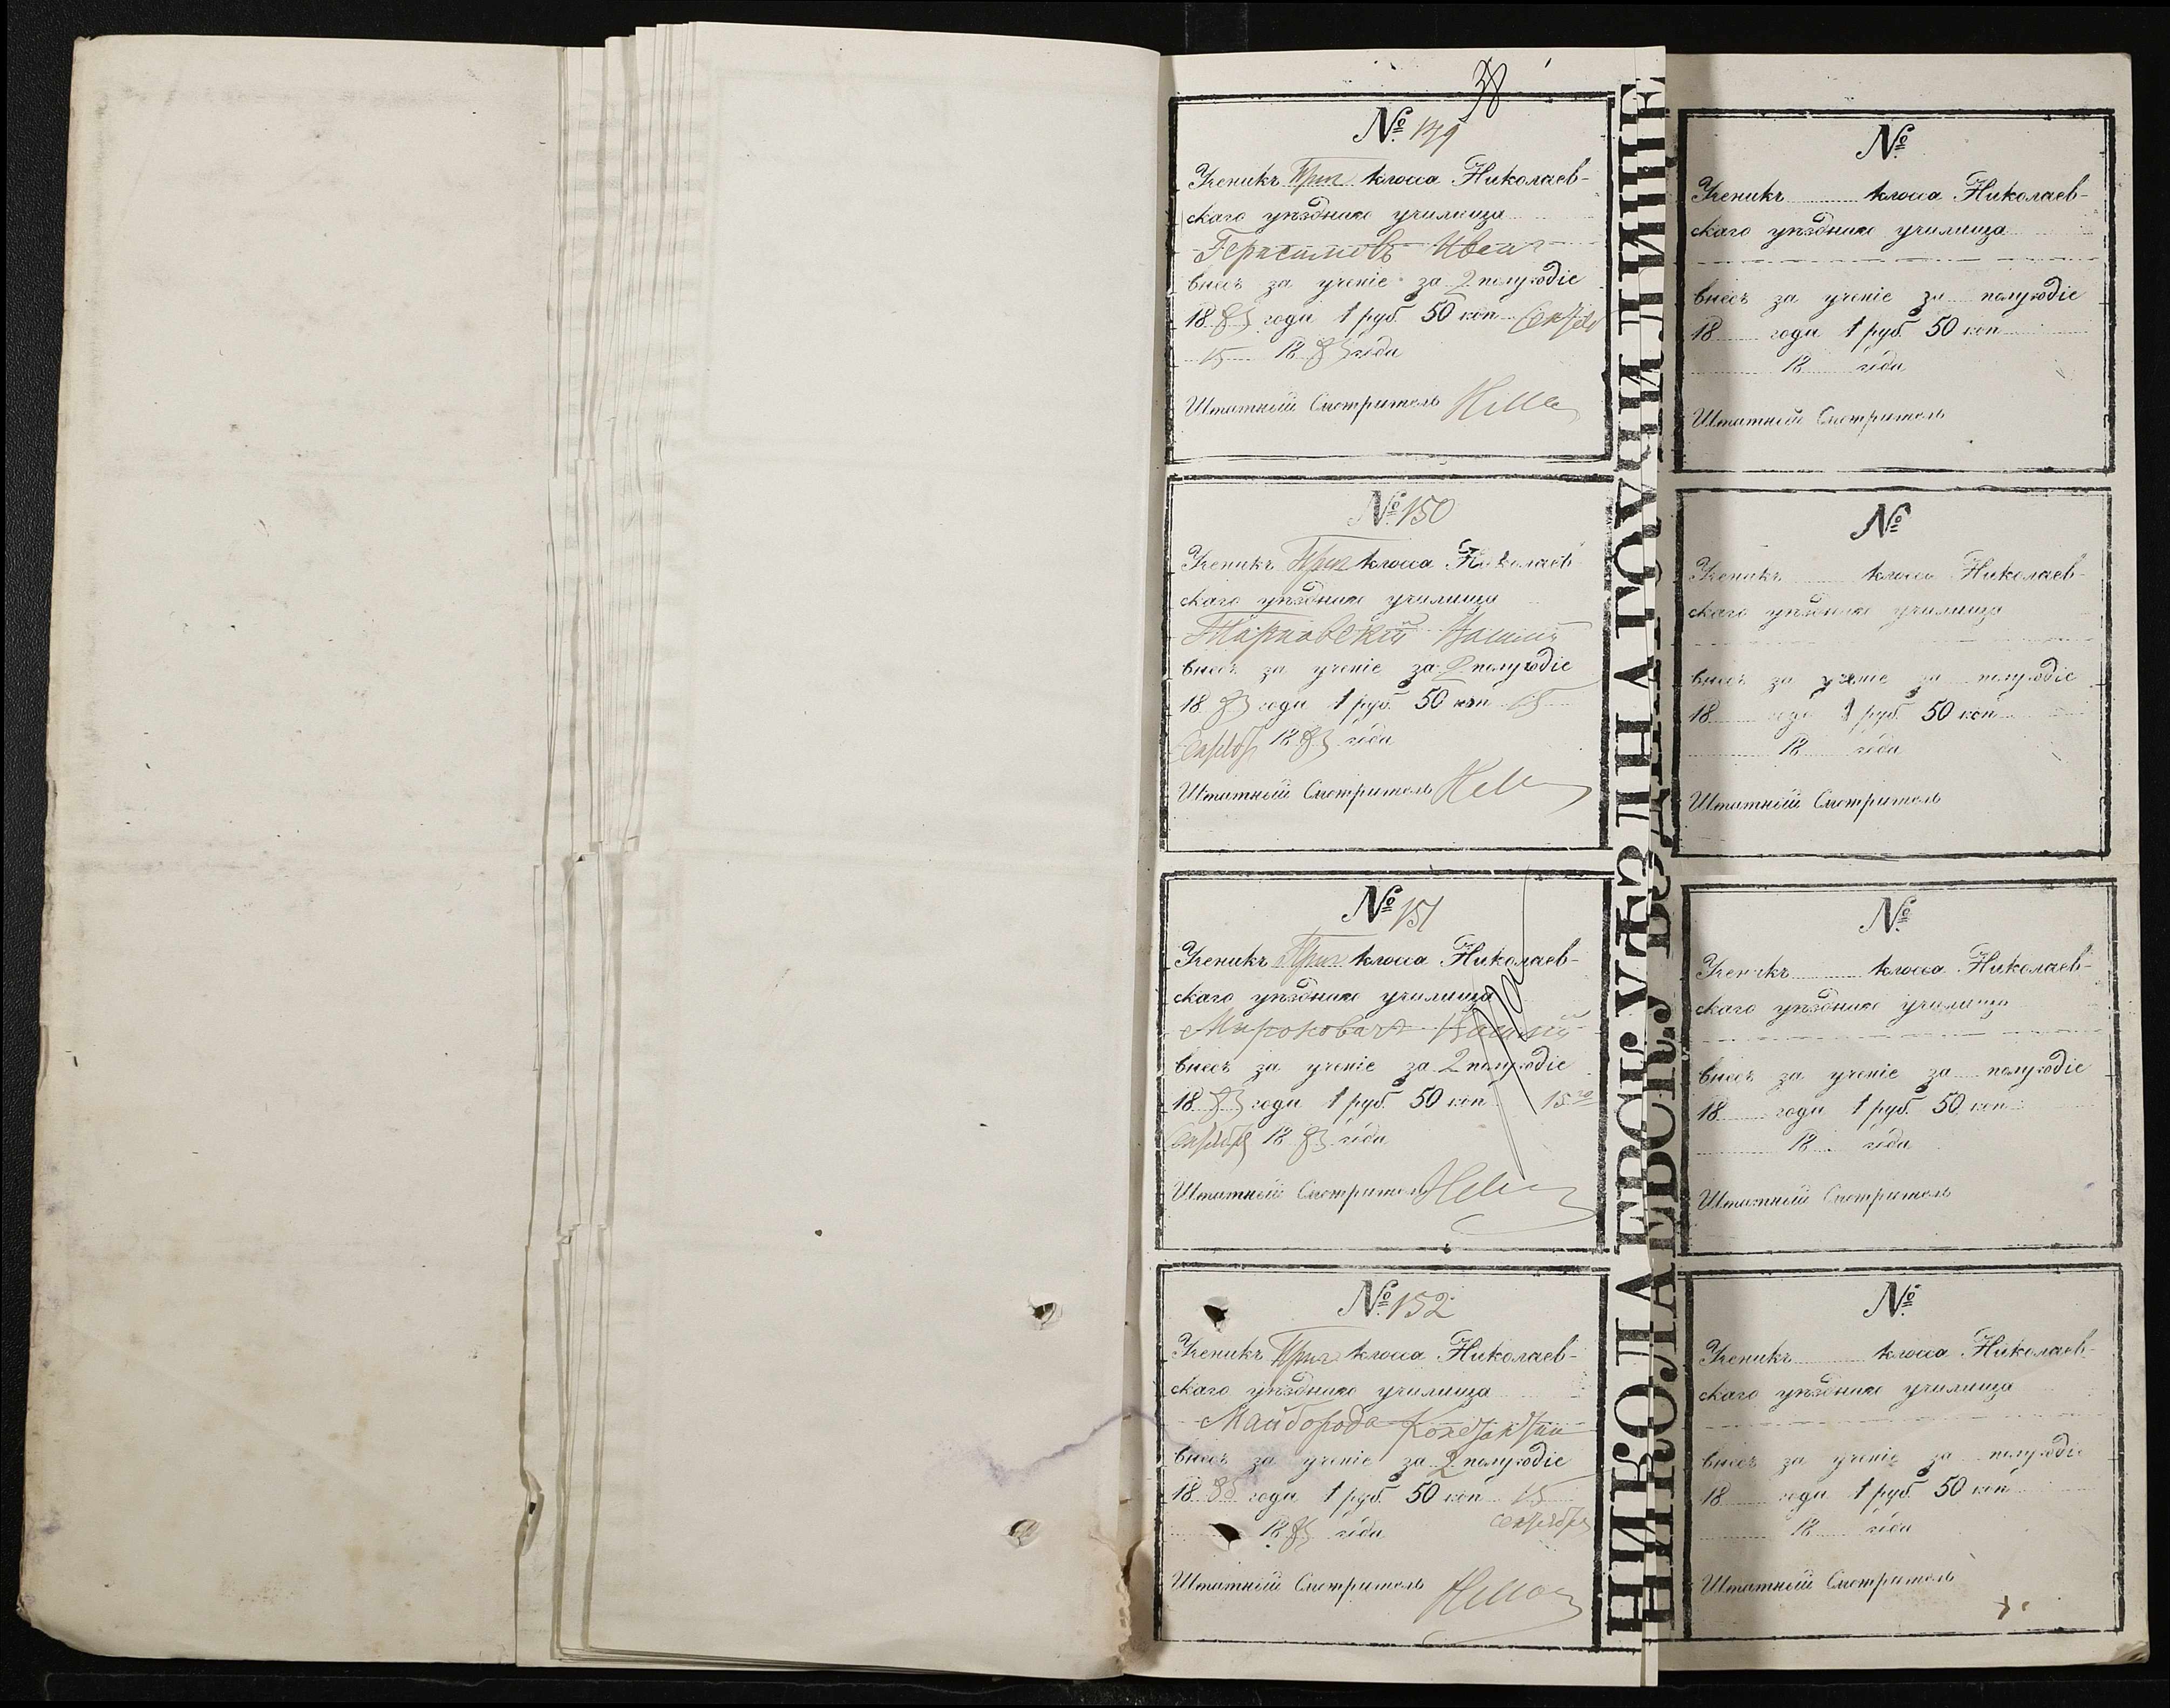 38
№ 149
Ученикъ Приг. класса Николаев-
скаго уѣзднаго училища
Герасимовъ Иван
внесъ за ученіе за 2 полугодіе
18 83 года 1 руб. 50 коп.
15 18 83 года
Штатный Смотритель
№ 150
Ученикъ Приг. класса Николаев-
скаго уѣзднаго училища
Тарновскій
внесъ за ученіе за 2 полугодіе
18 83 года 1 руб. 50 коп. 15
18 83 года
Штатный Смотритель
№ 151
Ученикъ Приг. класса Николаев-
скаго уѣзднаго училища
внесъ за ученіе за 2 полугодіе
18 83 года 1 руб. 50 коп. 15 го
Сентября 18 83 года
Штатный Смотритель
№ 152
Ученикъ Приг. класса Николаев-
скаго уѣзднаго училища
Майборода
внесъ за ученіе за 2 полугодіе
18 83 года 1 руб. 50 коп. 15
18 83 года сентября
Штатный Смотритель
НИКОЛАЕВСК. УѢЗДНАГО УЧИЛИЩЕ
№
Ученикъ класса Николаев-
скаго уѣзднаго училища
внесъ за ученіе за полугодіе
18 года 1 руб. 50 коп.
18 года
Штатный Смотритель
№
Ученикъ класса Николаев-
скаго уѣзднаго училища
внесъ за ученіе за полугодіе
18 года 1 руб. 50 коп.
18 года
Штатный Смотритель
№
Ученикъ класса Николаев-
скаго уѣзднаго училища
внесъ за ученіе за полугодіе
18 года 1 руб. 50 коп.
18 года
Штатный Смотритель
№
Ученикъ класса Николаев-
скаго уѣзднаго училища
внесъ за ученіе за полугодіе
18 года 1 руб. 50 коп.
18 года
Штатный Смотритель